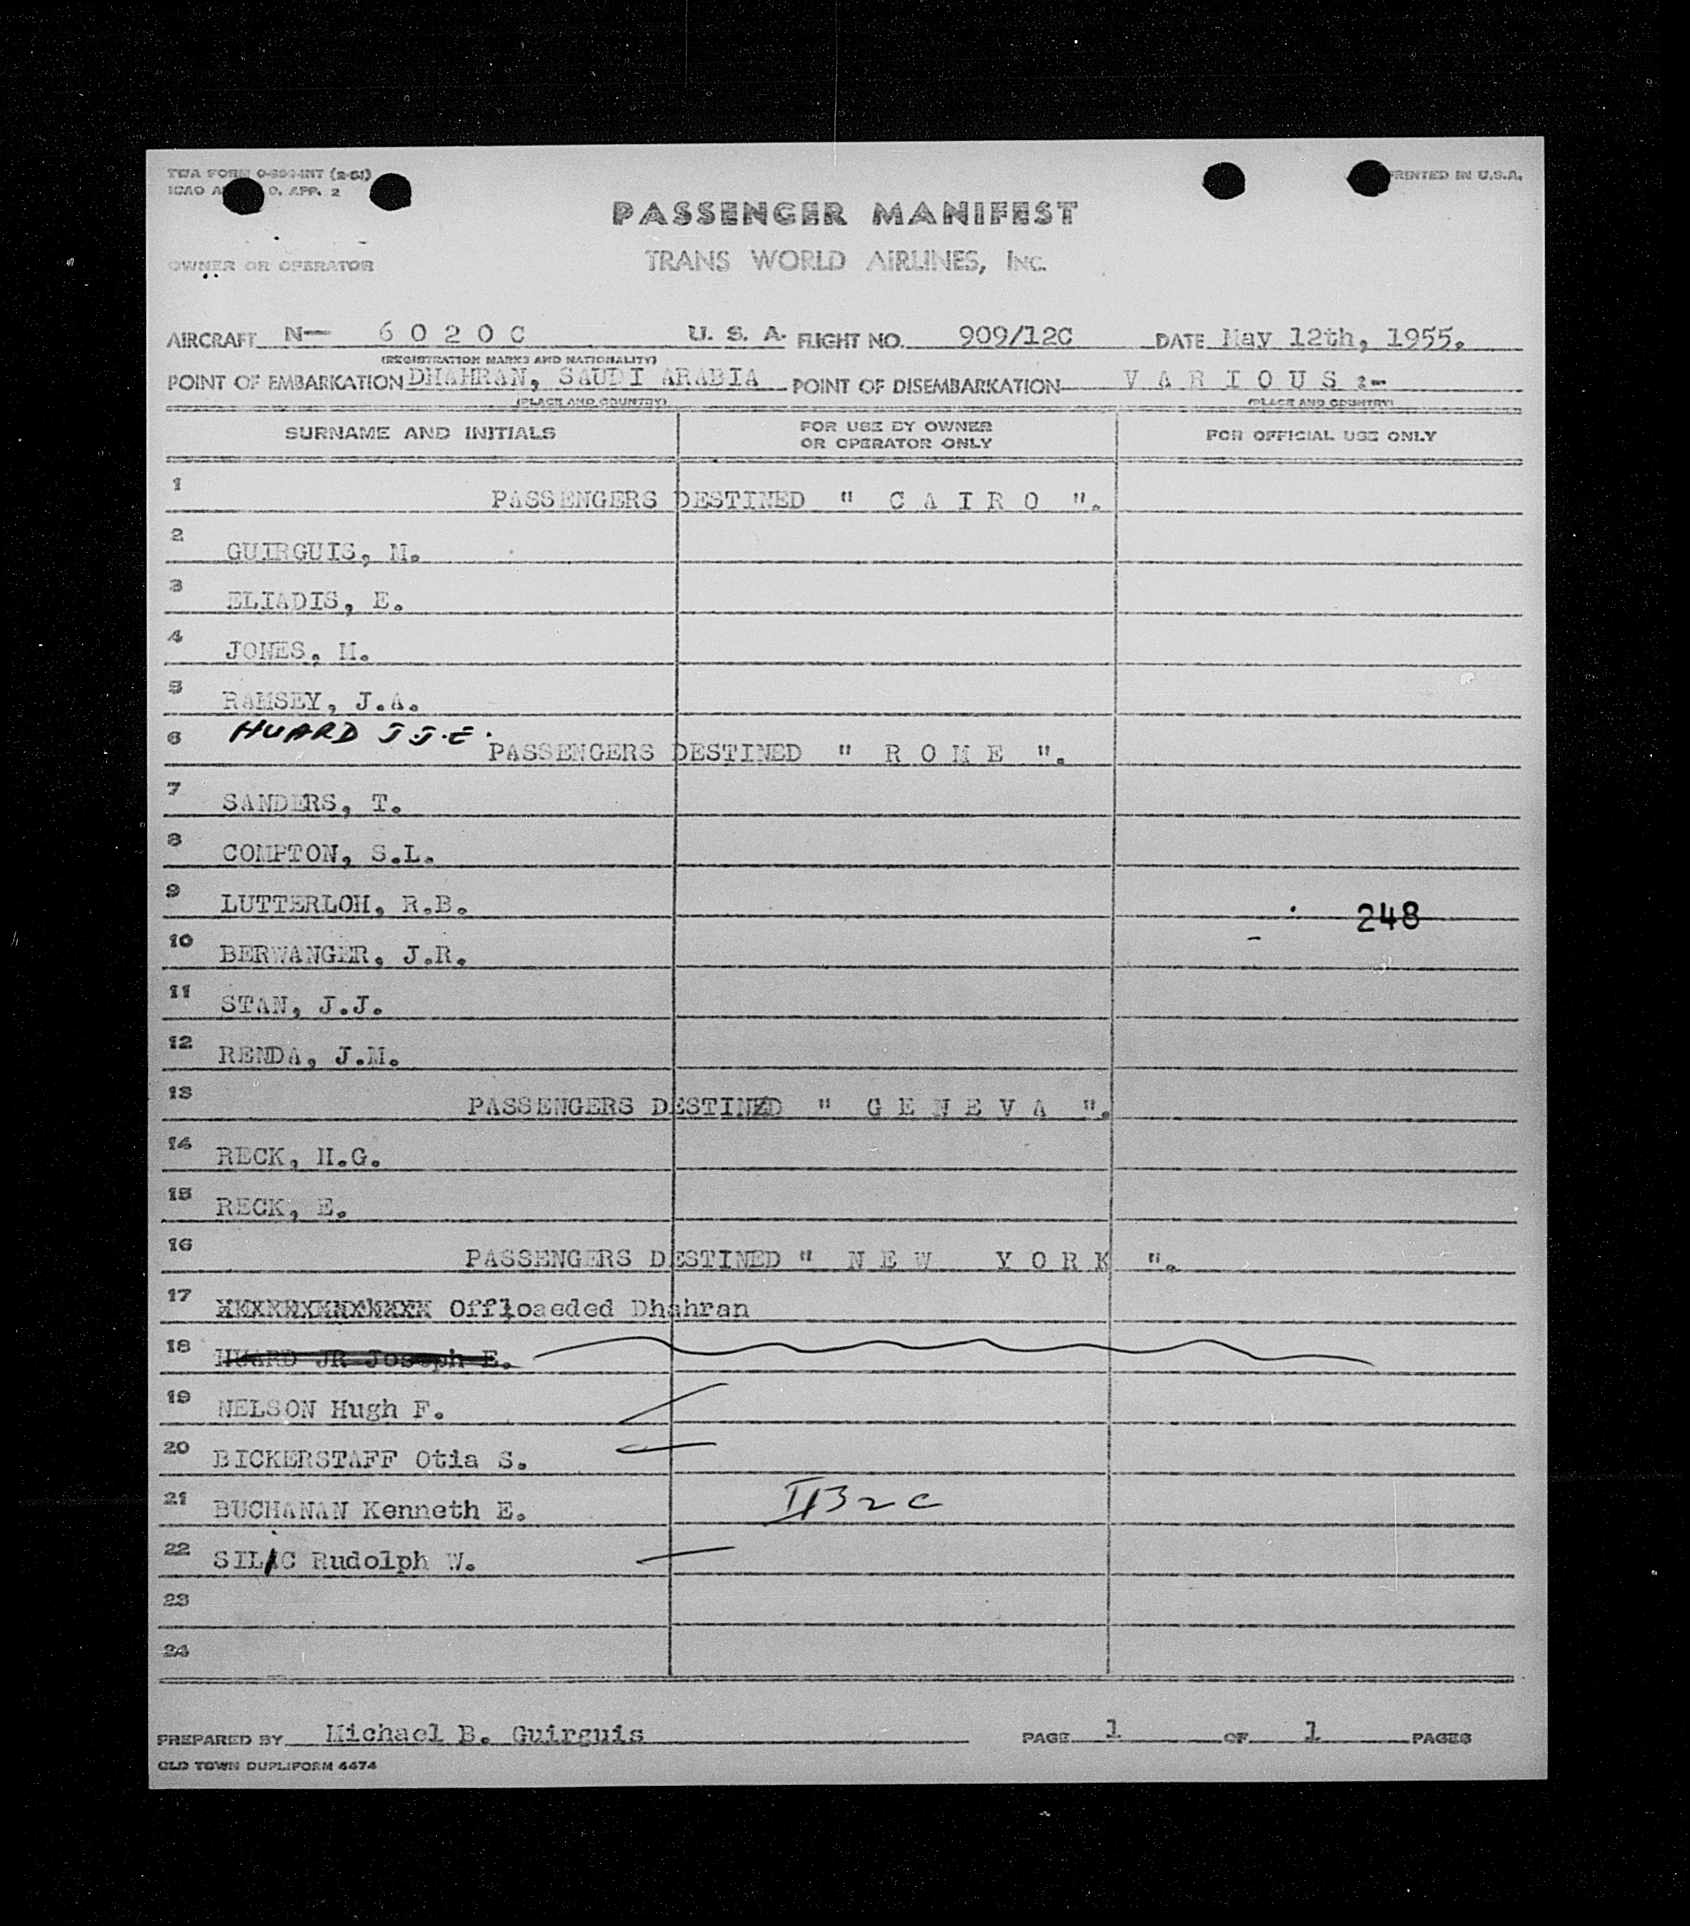 TWA FORM O-394-INT (2-51)
PRINTED IN U.S.A.
ICAO O. APP. 2
PASSENGER MANIFEST
OWNER OR OPERATOR
TRANS WORLD AIRLINES, INC.
AIRCRAFT N- 6 0 2 0 C U. S. A. FLIGHT NO. 909/12C DATE May 12th, 1955.
(REGISTRATION MARKS AND NATIONALITY)
POINT OF EMBARKATION DHAHRAN, SAUDI ARABIA POINT OF DISEMBARKATION V A R I O U S :-
(PLACE AND COUNTRY) (PLACE AND COUNTRY)
SURNAME AND INITIALS
FOR USE BY OWNER
OR OPERATOR ONLY
FOR OFFICIAL USE ONLY
1 PASSENGERS DESTINED " C A I R O ".
2 GUIRGUIS, M.
3 ELIADIS, E.
4 JONES, H.
5 RAMSEY, J.A.
HUARD J J.E.
6 PASSENGERS DESTINED " R O M E ".
7 SANDERS, T.
8 COMPTON, S.L.
9 LUTTERLOH, R.B. 248
10 BERWANGER, J.R.
11 STAN, J.J.
12 RENDA, J.M.
13 PASSENGERS DESTINED " G E N E V A ".
14 RECK, H.G.
15 RECK, E.
16 PASSENGERS DESTINED " N E W Y O R K ".
17 Offloaeded Dhahran
18 HUARD JR Joseph E.
19 NELSON Hugh F.
20 BICKERSTAFF Otia S.
21 BUCHANAN Kenneth E.
22 SILIC Rudolph W.
23
24
PREPARED BY Michael B. Guirguis PAGE 1 OF 1 PAGES
OLD TOWN DUPLIFORM 4474